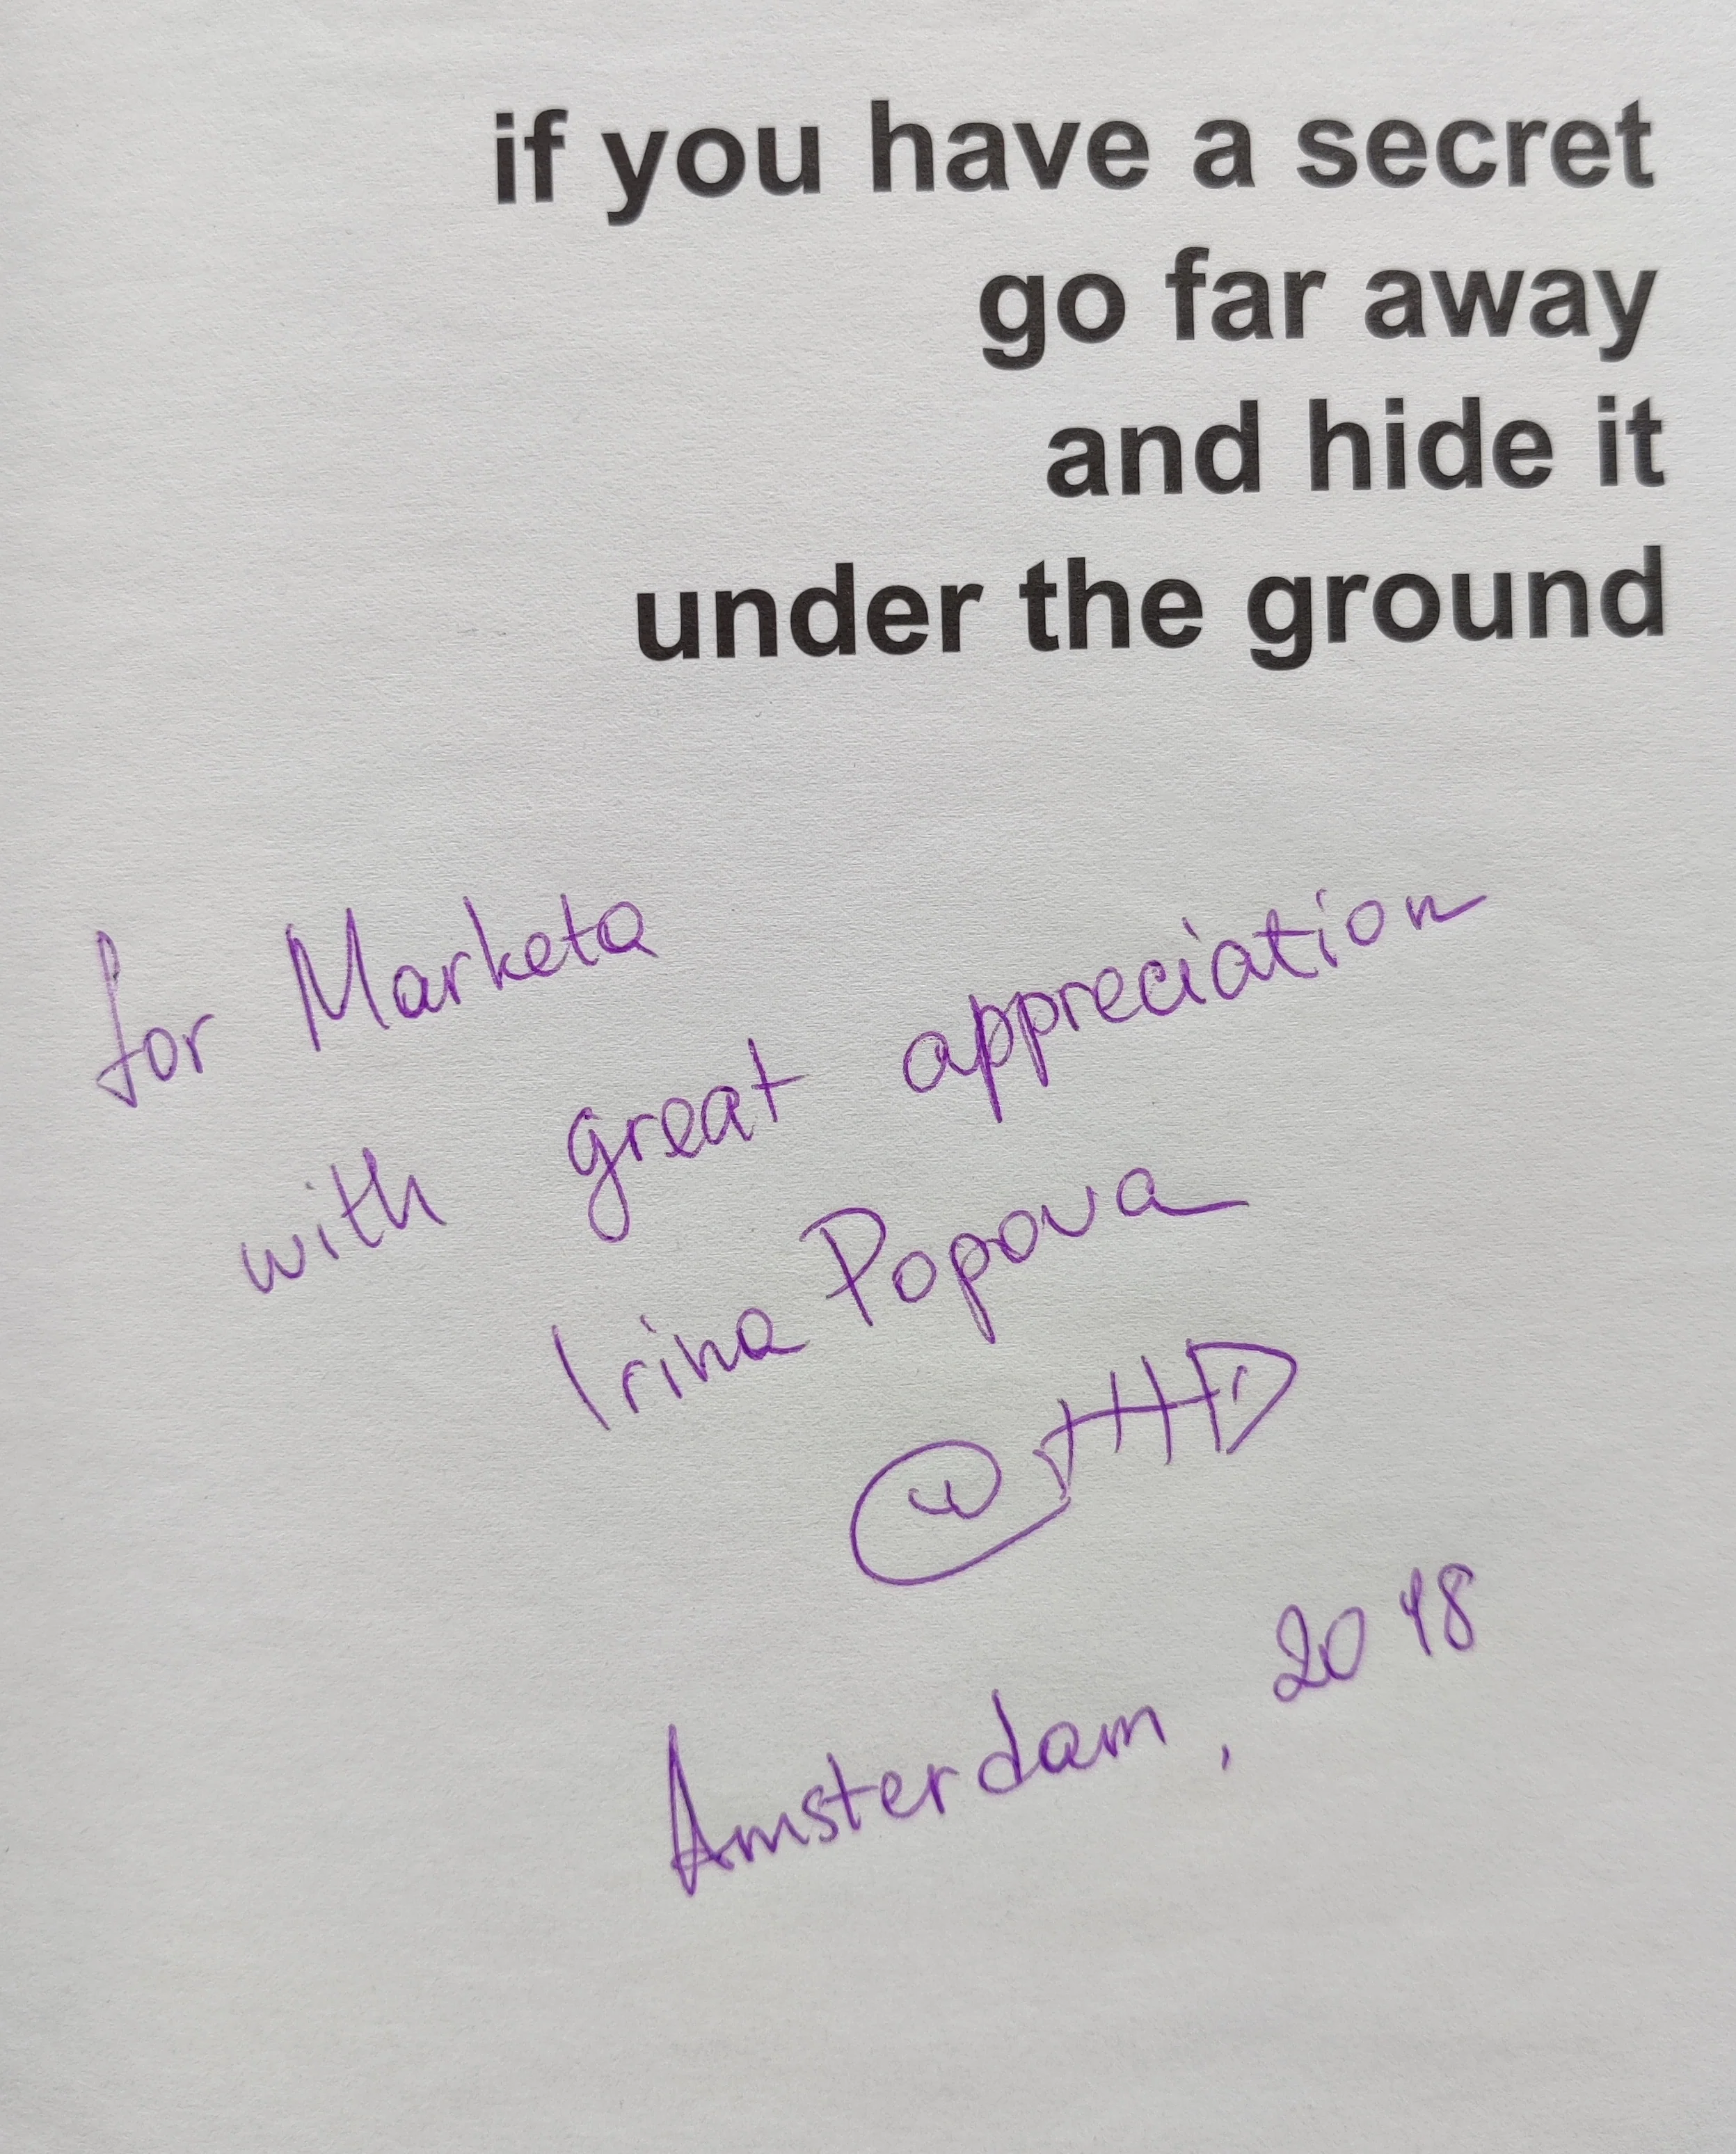 if you have a secret
go far away
and hide it
under the ground
for Marketa
with great appreciation
Irina Popova
Amsterdam, 2018